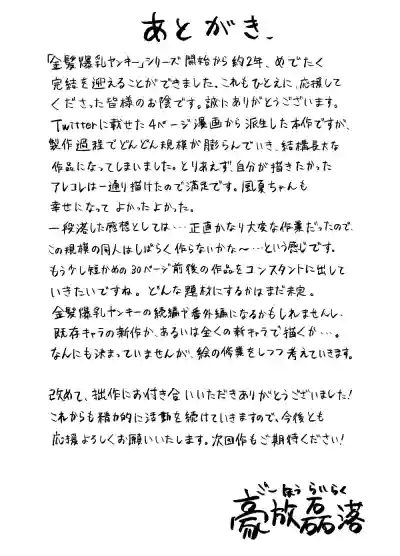 あとがき.
「金髪爆乳ヤンキー」シリーズ開始から約2年、めでたく
完結を迎えることができました。これもひとえに、応援して
くださった皆様のお陰です。誠にありがとうございます。
Twitterに載せた4ページ漫画から派生した本作ですが、
製作過程でどんどん規模が膨らんでいき、結構長大な
作品になってしまいました。とりあえず、自分が描きたかった
アレコレは一通り描けたので満足です。風夏ちゃんも
幸せになってよかったよかった。
一段落した感想としては…正直かなり大変な作業だったので、
この規模の同人はしばらく作らないかな〜…という感じです。
もう少し短かめの30ページ前後の作品をコンスタントに出して
いきたいですね。どんな題材にするかはまだ未定。
金髪爆乳ヤンキーの続編や番外編になるかもしれませんし、
既存キャラの新作か、あるいは全くの新キャラで描くか…。
なんにも決まっていませんが、絵の作業をしつつ考えていきます。
改めて、拙作にお付き合いいただきありがとうございました!
これからも精力的に活動を続けていきますので、今後とも
応援よろしくお願いいたします。次回作もご期待ください!
ごーほうらいらく
豪放磊落